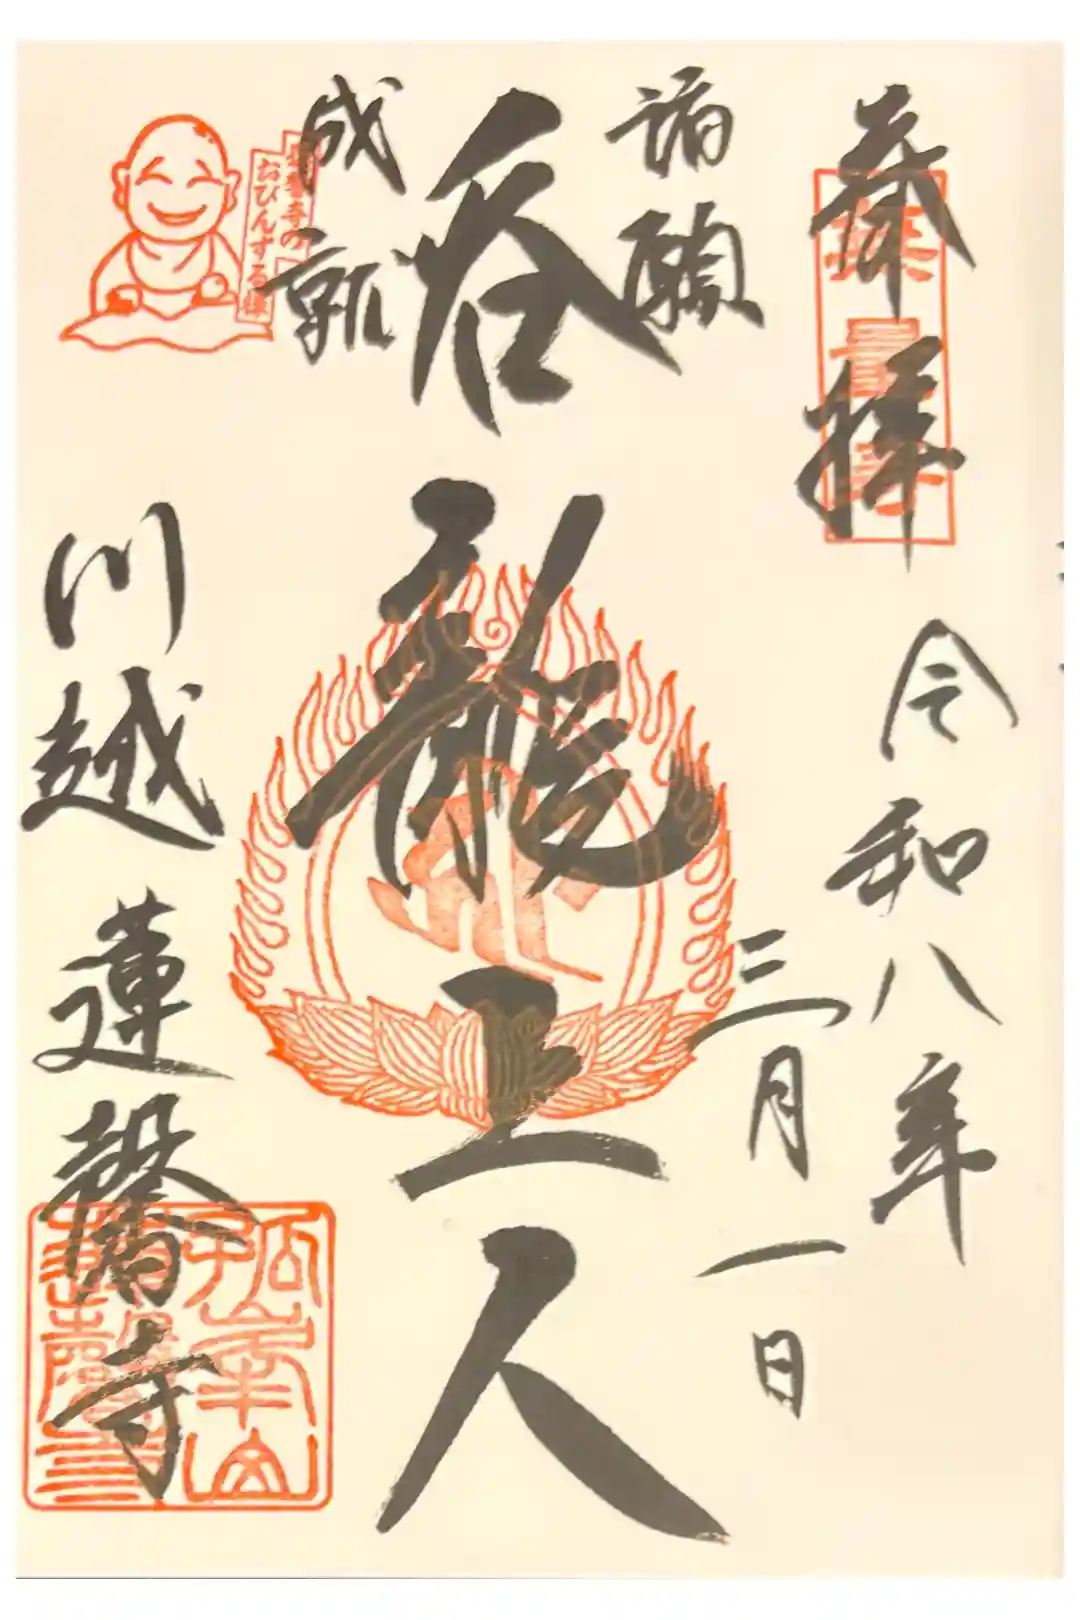 奉拝
令和八年
三月一日
諸願
呑龍上人
成就
おびんずる様
川越 蓮馨寺
孤峯山